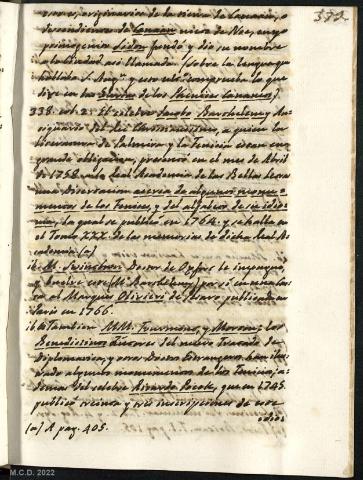 332
nos, originarios de la tierra de Canaán, o
descendientes de Canaan nieto de Noe, cuyo
primogenito Sidon fundó y dió su nombre
a la Ciudad asi llamada. (sobre la lengua que
hablaba S. Aug.ⁿ y esto
dice en las de los Phenicios Cananeos)
338. col. 2. El celebre Jacobo Barthelemy An-
tiquario del Rei Christianissimo, a quien la
literatura de Palmira y la Fenicia deben tan
grande obligacion, presentó en el mes de Abril
de 1758. a la Real Academia de las Bellas Letras
una Disertacion acerca de algunos monu-
mentos de los Fenices, y del alfabeto de su idio-
ma, la qual se publicó en 1764. y se halla en
el Tomo XXX. de las memorias de dicha Real A-
cademia (a)
ib. M. Swinthon Doctor de Oxfort le impugnó,
y bolvió M. Barthelemy por sí en una Car-
ta al Marques Olivieri de Pesaro publicada en
Paris en 1766.
ib. Tambien MM. Fourmont, y Morton; los
Benedictinos Autores del nuevo Tratado de
Diplomatica, y otros Doctos Estrangeros han ilus-
trado algunos monumentos de los Fenicios; a-
demas del celebre Ricardo Pocok, que en 1745.
publicó treinta y tres inscripciones de este
idio
(a) A pag. 405.
M.C.D. 2022